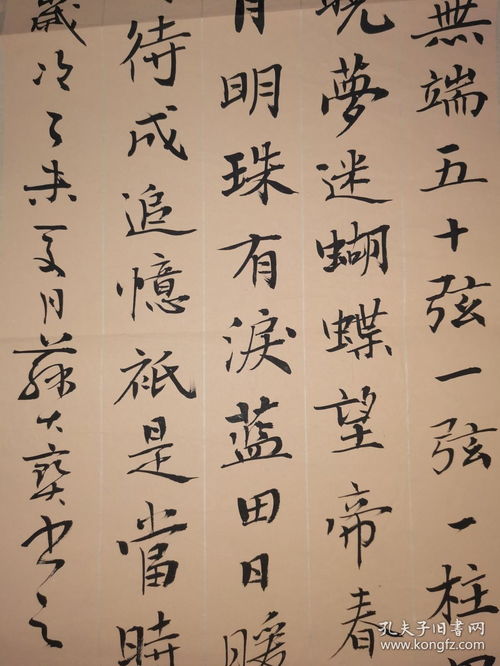 無端五十弦一弦一柱
曉夢迷蝴蝶望帝春
月明珠有淚藍田日暖
待成追憶祇是當時
歲次丁未夏月蘇大寶書之
孔夫子旧书网
www.kongfz.com